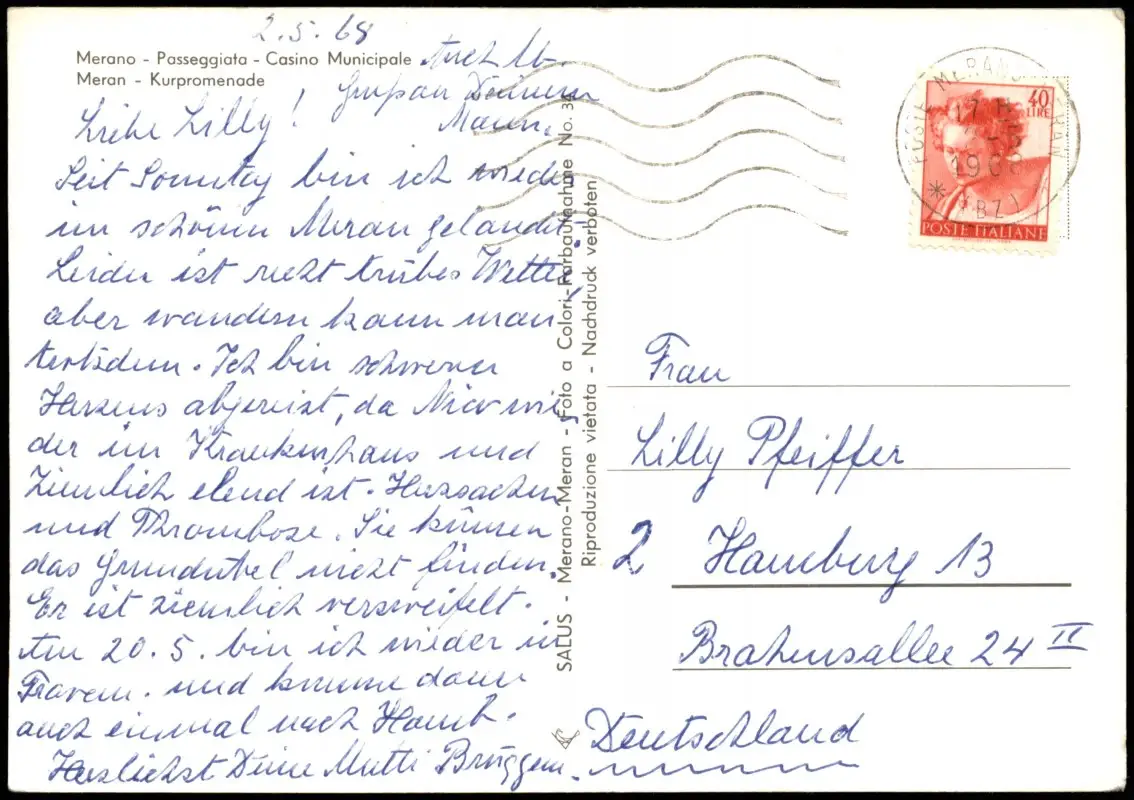 2.5.68
Merano - Passeggiata - Casino Municipale
Meran - Kurpromenade
Auch lb.
Gruß an Deinen
Mann.
Liebe Lilly!
Seit Sonntag bin ich wieder
im schönen Meran gelandet.
Leider ist recht trübes Wetter,
aber wandern kann man
trotzdem. Ich bin schweren
Herzens abgereist, da Nico wie
der im Krankenhaus und
ziemlich elend ist. Herzsachen
und Thrombose. Sie können
das Grundübel nicht finden.
Er ist ziemlich verzweifelt.
Am 20.5. bin ich wieder in
und komme dann
auch einmal nach Hamb.
Herzlichst Deine Mutti Brüggem.
SALUS - Merano-Meran - Foto a Colori-Farbaufnahme No. 34
Riproduzione vietata - Nachdruck verboten
POSTE MERANO MERAN
17
1968
(BZ)
40
LIRE
POSTE ITALIANE
Frau
Lilly Pfeiffer
2 Hamburg 13
Brahmsallee 24 II
Deutschland